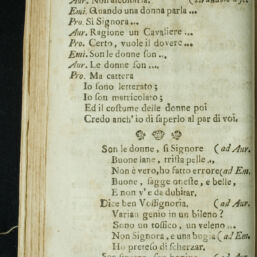 Emi. Quando una donna parla ...
Pro. Sì Signora ...
Aur. Ragione un Cavaliere ...
Pro. Certo, vuole il dovere ...
Emi. Son le donne son ..
Aur. Le donne son ...
Pro. Ma cattera
Io sono letterato;
Io son matricolato;
Ed il costume delle donne poi
Credo anch'io di saperlo al par di voi.
Son le donne, sì Signore (ad Aur.
Buone jane, trista pelle.,
Non è vero, ho fatto errore (ad Em.
Buone, sagge oneste, e belle,
E non v'è da dubitar.
Dice ben Vosignoria. (ad Aur.
Varian genio in un bileno?
Sono un tossico, un veleno ...
Non Signora, è una bugia (ad Em.
Ho preteso di scherzar.